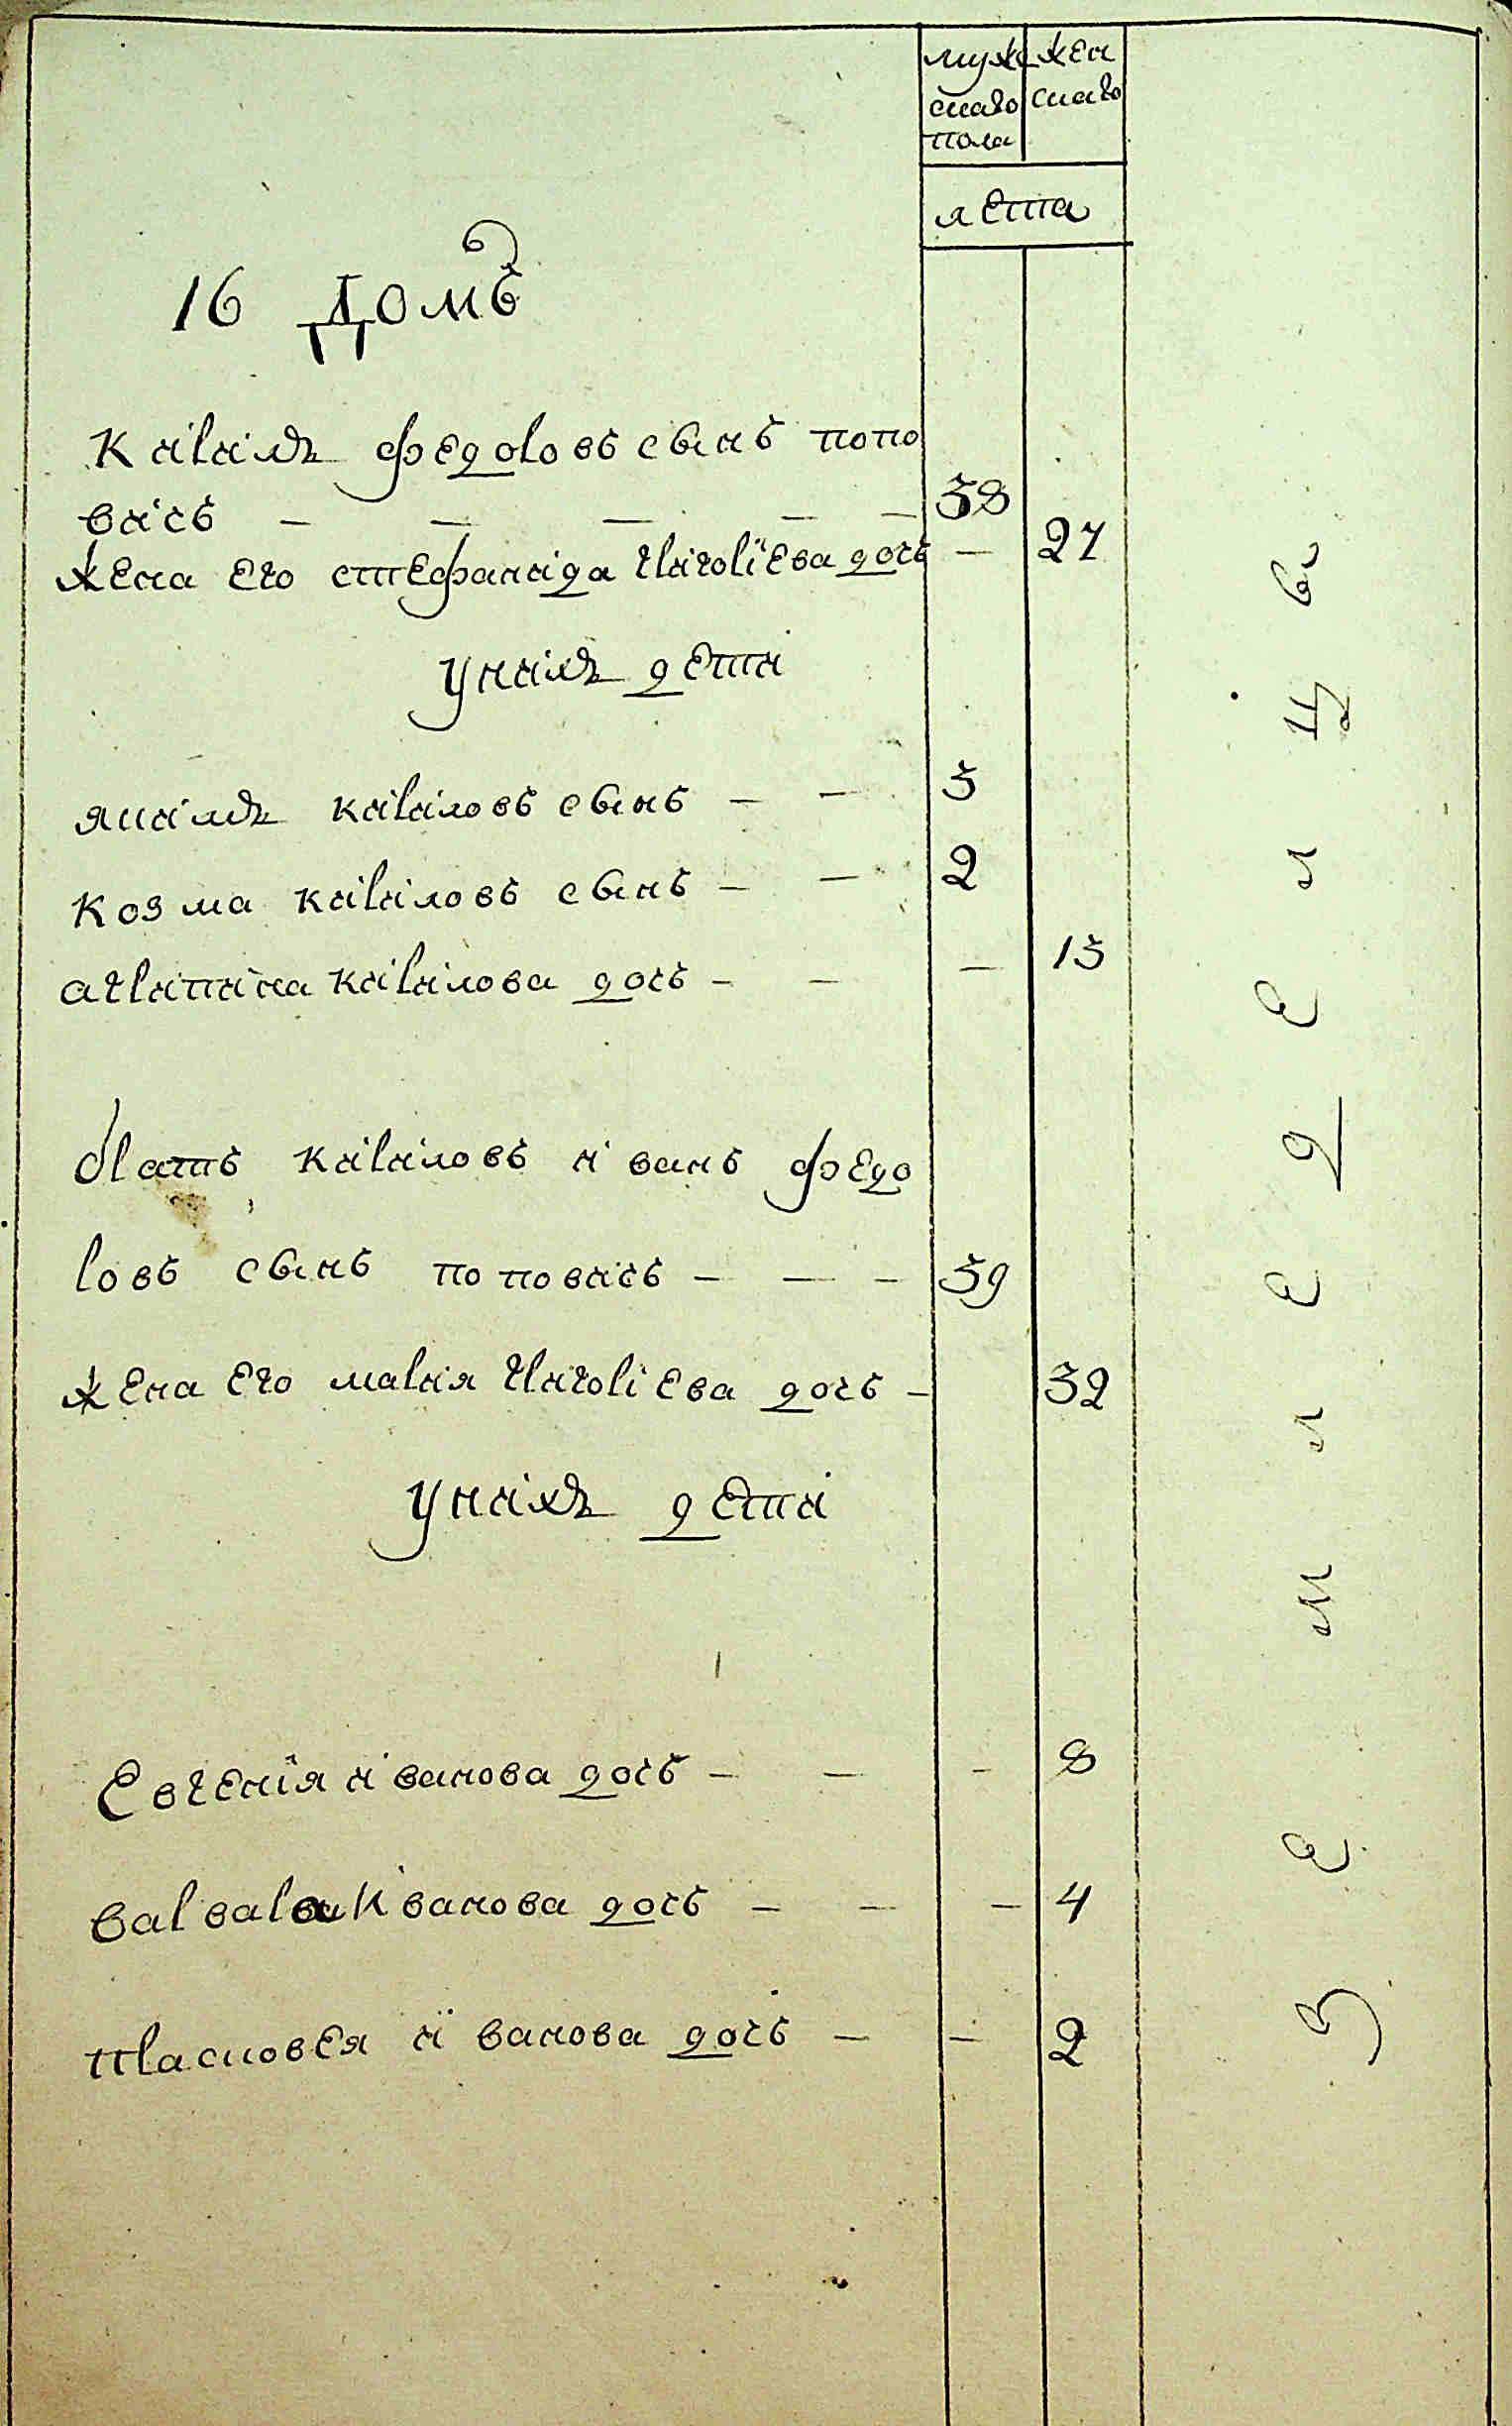 муж жен
скаго скаго
пола
лета
16 Домъ
Кирилъ федоровъ сынъ попо
вичь — — — — — 38
жена его стефанида григорïева дочь — 27
унихъ дети
якимъ кириловъ сынъ — — 3
Козма кириловъ сынъ — — 2
агрипина кирилова дочь — — — 13
братъ кириловъ иванъ федо
ровъ сынъ поповичь — — — 39
жена его мария григориева дочь — 32
унихъ дети
Евгенïя иванова дочь — — — 8
варвара иванова дочь — — — 4
прасковея иванова дочь — — 2
земледелцы